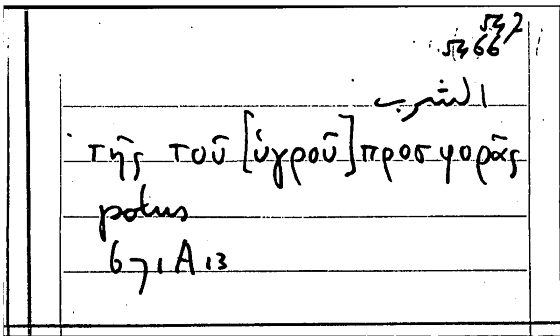 الشرب
τῆς τοῦ [ὑγροῦ] προσφορᾶς
potus
671 A 13